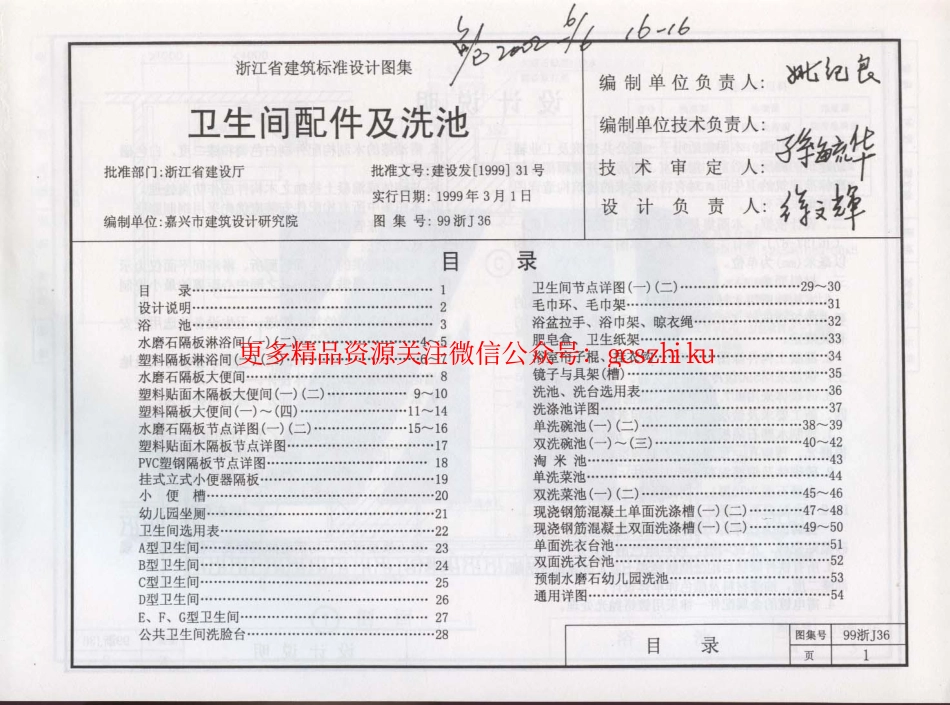 2002 6/6 16-16
浙江省建筑标准设计图集
卫生间配件及洗池
批准部门:浙江省建设厅
批准文号:建设发[1999] 31号
实行日期:1999年3月1日
编制单位:嘉兴市建筑设计研究院
图 集 号:99浙J36
编 制 单 位 负 责 人: 姚纪良
编制单位技术负责人:
技 术 审 定 人:
设 计 负 责 人: 徐文辉
目 录
目 录 1
设计说明 2
浴 池 3
水磨石隔板淋浴间(一)(二) 4~5
塑料隔板淋浴间
水磨石隔板大便间 8
塑料贴面木隔板大便间(一)(二) 9~10
塑料隔板大便间(一)~(四) 11~14
水磨石隔板节点详图(一)(二) 15~16
塑料贴面木隔板节点详图 17
PVC塑钢隔板节点详图 18
挂式立式小便器隔板 19
小 便 槽 20
幼儿园坐厕 21
卫生间选用表 22
A型卫生间 23
B型卫生间 24
C型卫生间 25
D型卫生间 26
E、F、G型卫生间 27
公共卫生间洗脸台 28
卫生间节点详图(一)(二) 29~30
毛巾环、毛巾架 31
浴盆拉手、浴巾架、晾衣绳 32
肥皂盒、卫生纸架 33
34
镜子与具架(槽) 35
洗池、洗台选用表 36
洗涤池详图 37
单洗碗池(一)(二) 38~39
双洗碗池(一)~(三) 40~42
淘 米 池 43
单洗菜池 44
双洗菜池(一)(二) 45~46
现浇钢筋混凝土单面洗涤槽(一)(二) 47~48
现浇钢筋混凝土双面洗涤槽(一)(二) 49~50
单面洗衣台池 51
双面洗衣台池 52
预制水磨石幼儿园洗池 53
通用详图 54
更多精品资源关注微信公众号：gcszhiku
目 录
图集号 99浙J36
页 1